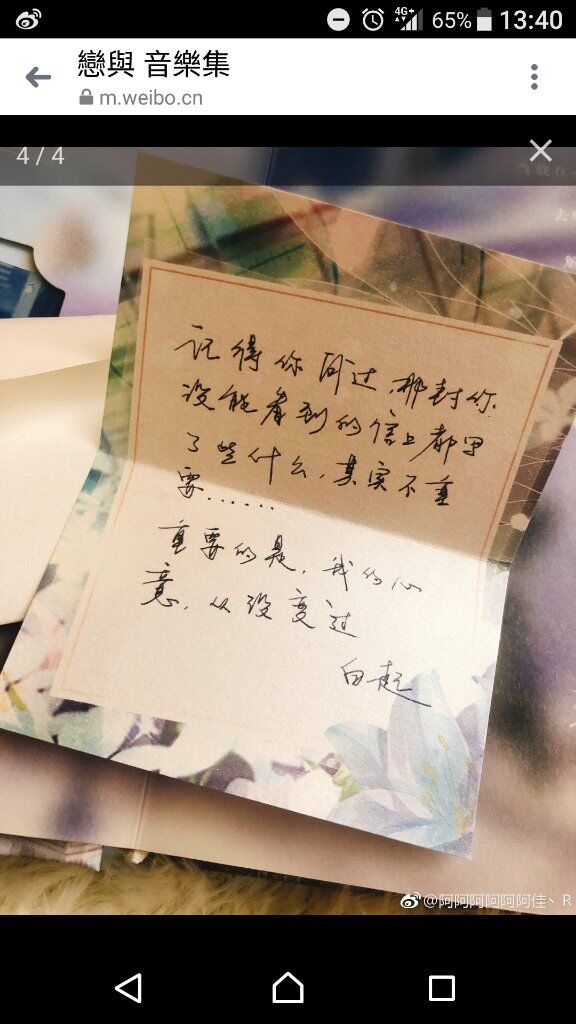 4G+ 65% 13:40
戀與 音樂集
m.weibo.cn
4 / 4
记得你问过,那封你
没能看到的信上都写
了些什么,其实不重
要……
重要的是,我的心
意,从没变过
白起
@阿阿阿阿阿阿佳、R